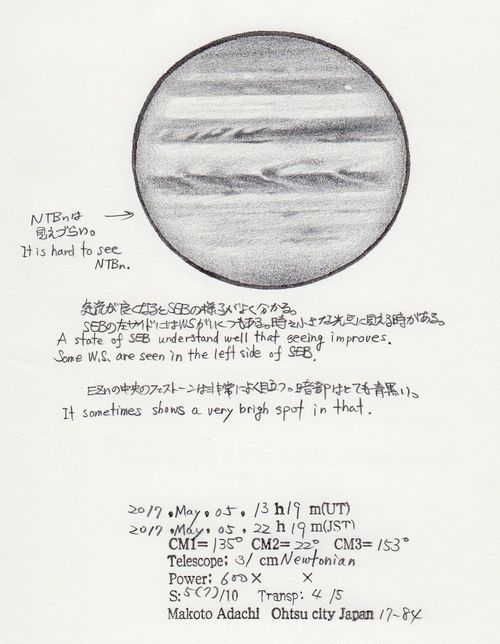 NTBnは
見えづらい。
It is hard to see
NTBn.
気流が良くなるとSEBの様子がよく分かる。
SEBの左サイドにはWSがいくつもある。時々小さな光点に見える時がある。
A state of SEB understand well that seeing improves.
Some W.S. are seen in the left side of SEB.
EZnの中央のフェストーンは非常によく目立つ。暗部はとても青黒い。
It sometimes shows a very brigh spot in that.
2017.May.05.13 h 19 m(UT)
2017.May.05.22 h 19 m(JST)
CM1= 135° CM2= 22° CM3= 153°
Telescope: 31 cm Newtonian
Power: 600 × ×
S: 5(7)/10 Transp: 4 /5
Makoto Adachi Ohtsu city Japan 17-84